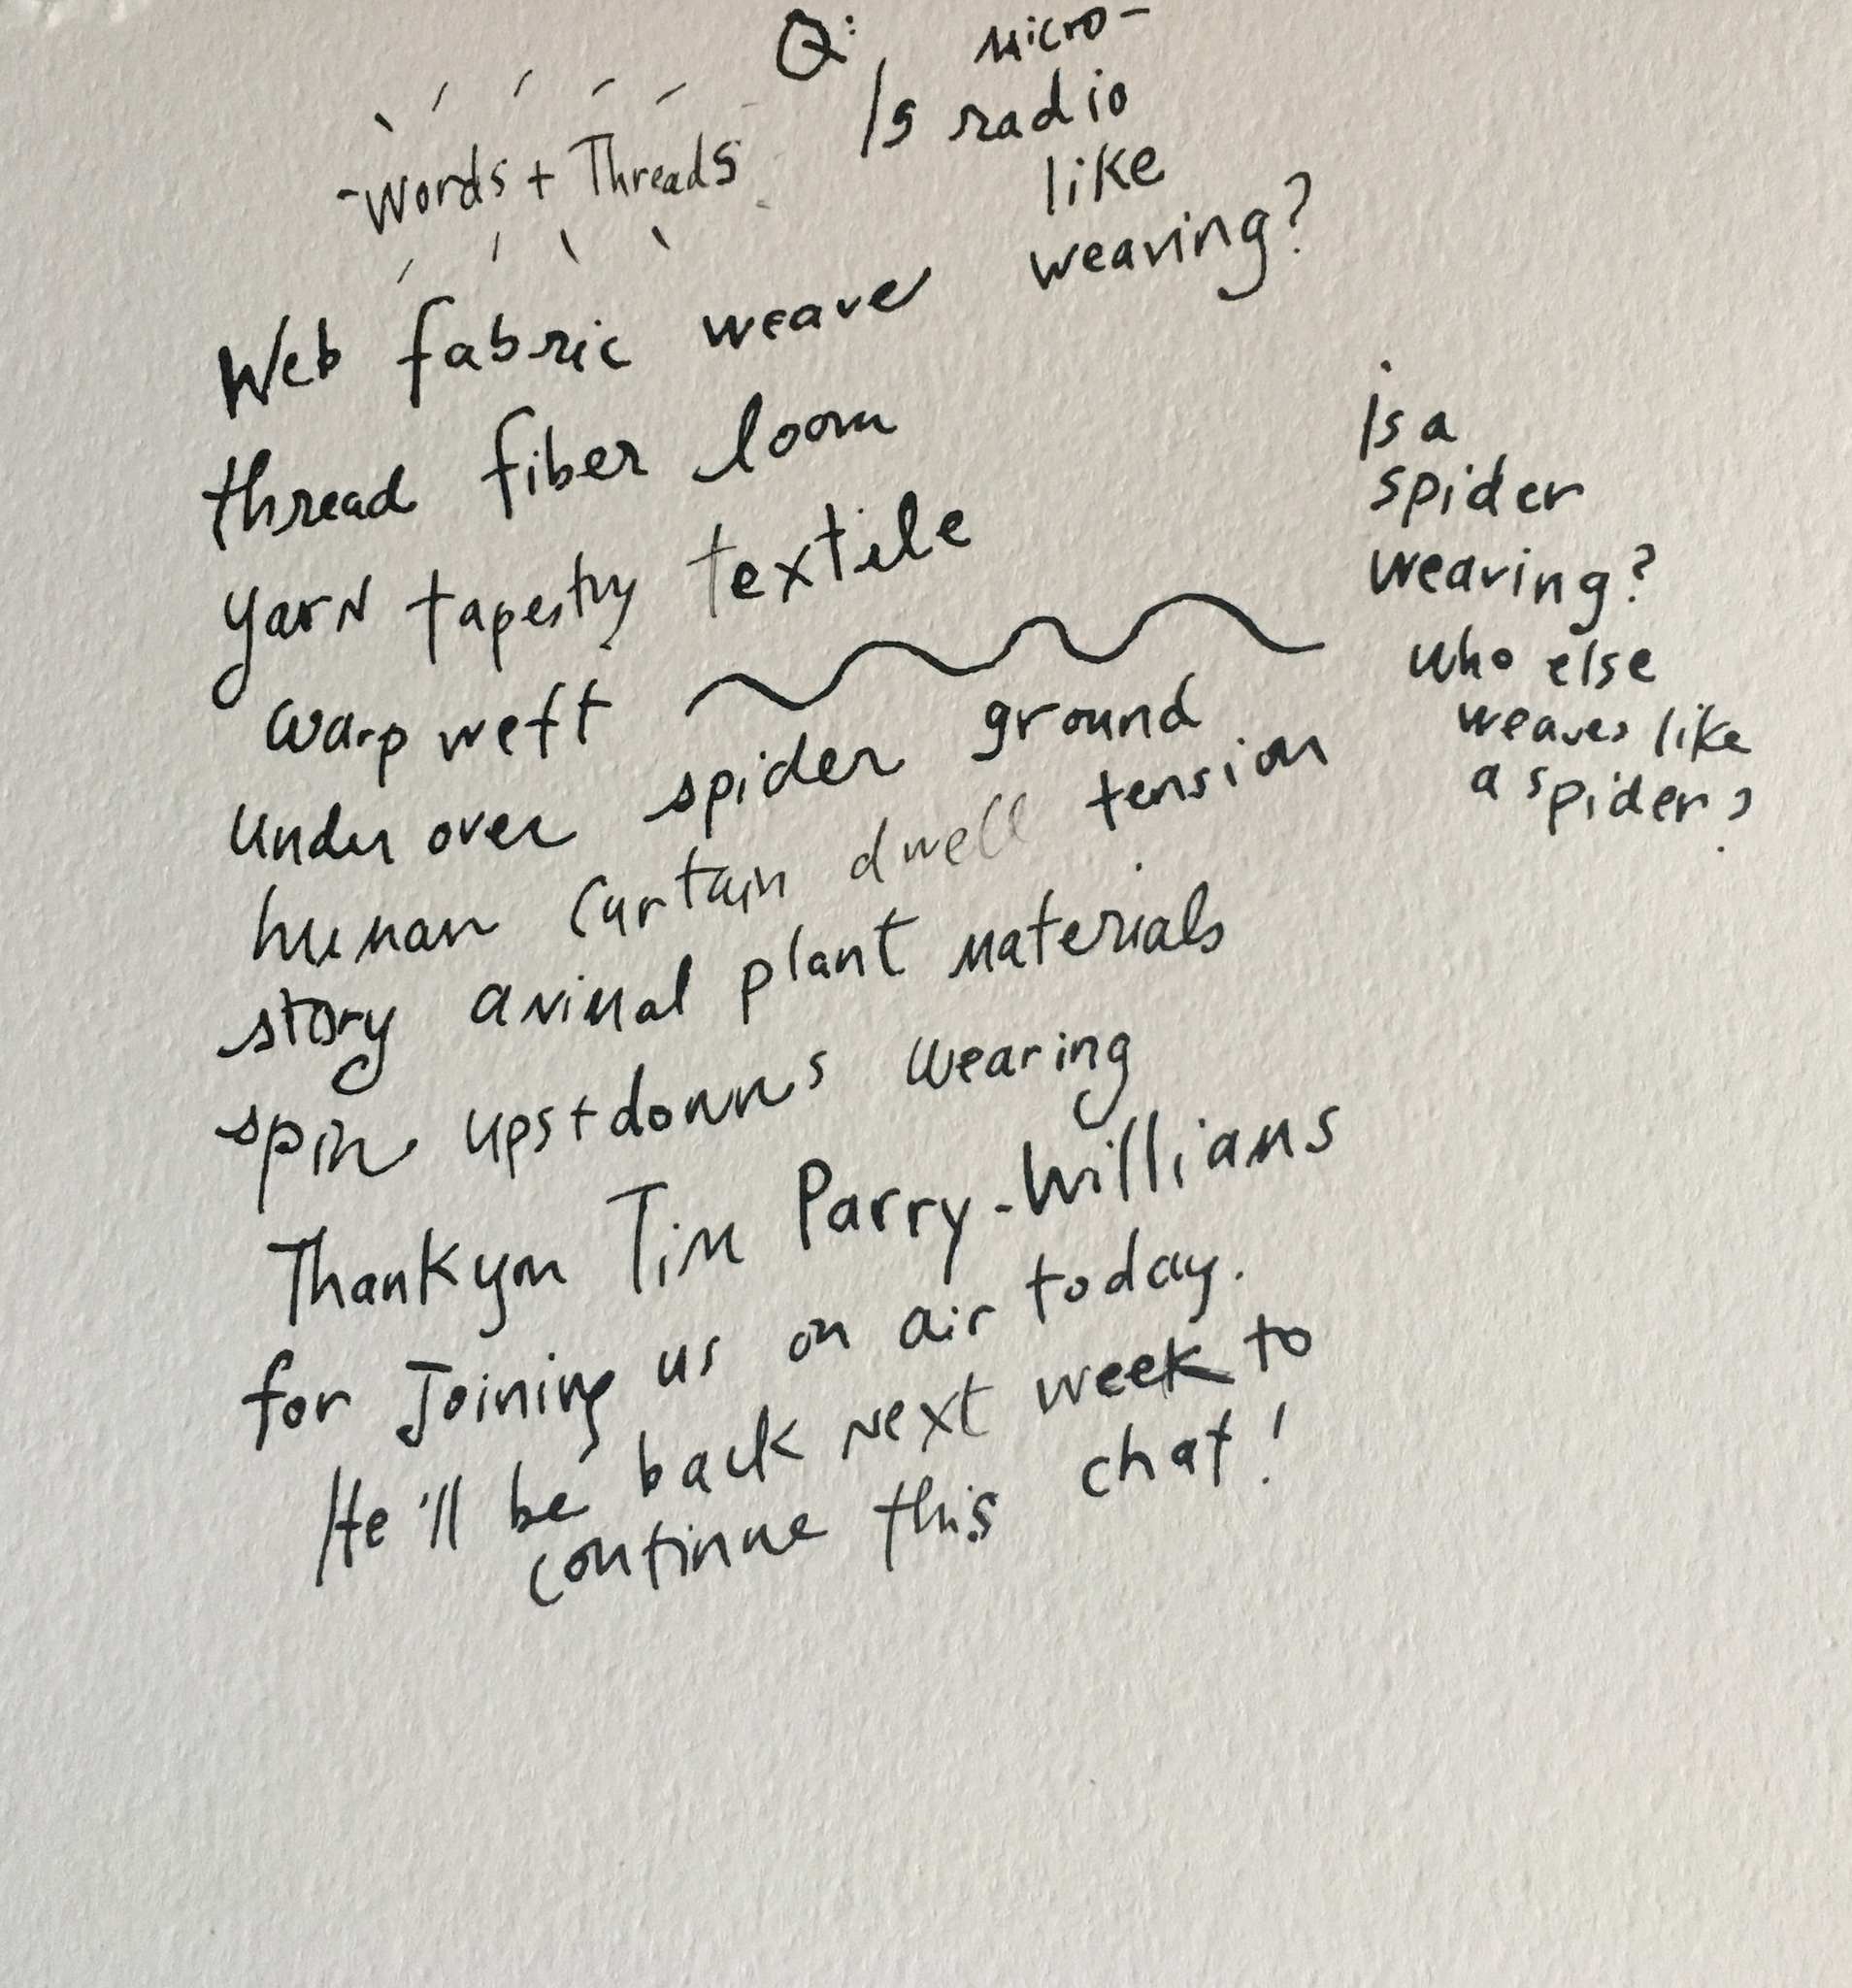 Q:
Is micro-
radio
like
weaving?
-Words + Threads-
Web fabric weave
thread fiber loom
yarn tapestry textile
warp weft
under over spider ground
human curtain dwell tension
story animal plant materials
spin ups + downs wearing
Thank you Tim Parry-Williams
for Joining us on air today.
He'll be back next week to
continue this chat!
is a
spider
weaving?
who else
weaves like
a spider?